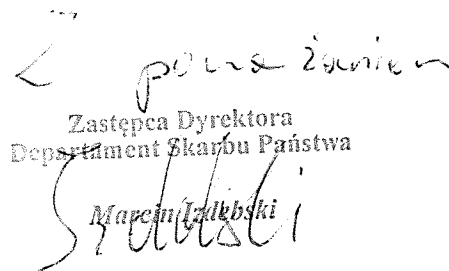 Z poważaniem
Zastępca Dyrektora
Departament Skarbu Państwa
Marcin Izdebski